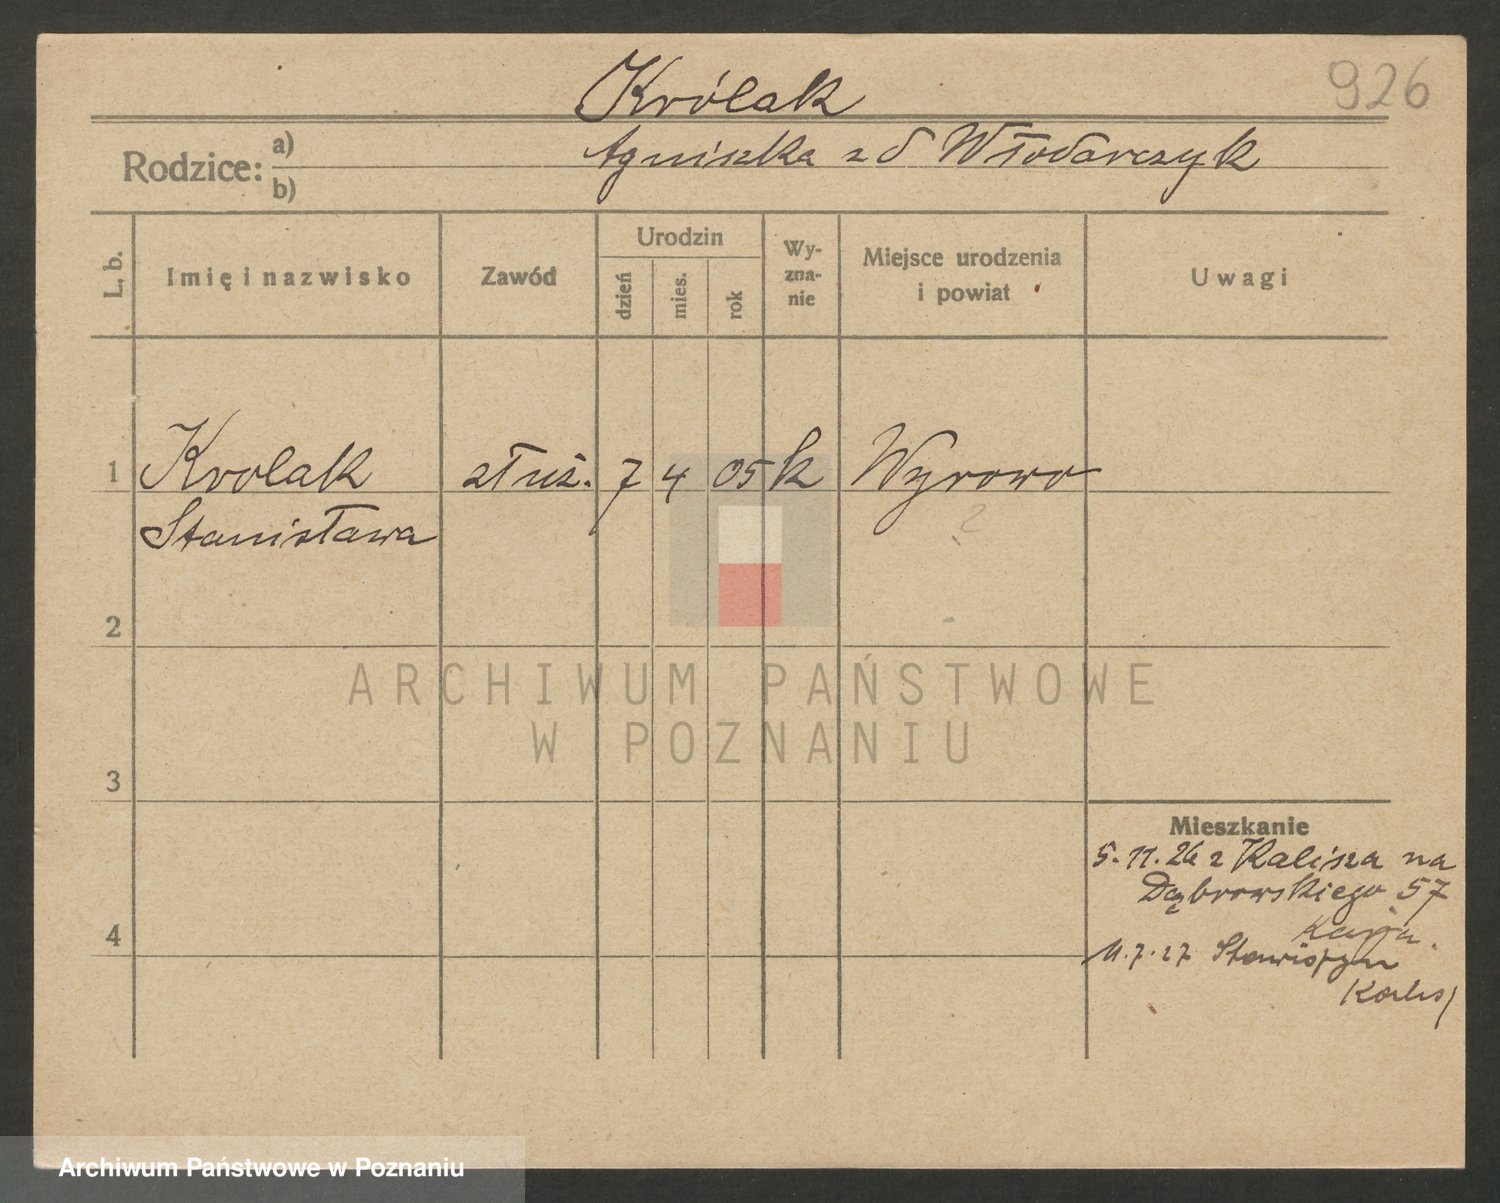 Królak
926
Rodzice:
a)
Agniszka z d Włodarczyk
b)
L. b.
Imię i nazwisko
Zawód
Urodzin
dzień
mies.
rok
Wy-
zna-
nie
Miejsce urodzenia
i powiat
Uwagi
1
Krolak
służ.
7
4
05
k
Wyrowo
Stanisława
?
2
ARCHIWUM PAŃSTWOWE
W POZNANIU
3
Mieszkanie
5.11.26 z Kalisza na
Dąbrowskiego 57
4
11.7.27 Stawiszyn
Kalisz
Archiwum Państwowe w Poznaniu